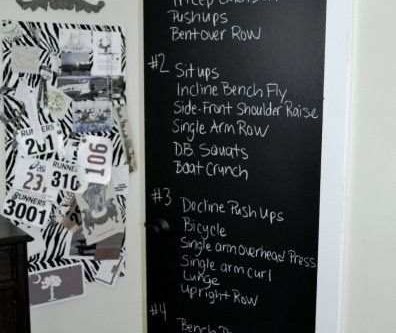 Pushups
Bentover Row
#2 Situps
Incline Bench Fly
Side-Front Shoulder Raise
Single Arm Row
DB Squats
Boat Crunch
#3 Decline Push Ups
Bicycle
Single arm overhead Press
Single arm curl
Lunge
Upright Row
#4
Bench
RUNNERS
201
106
23
310
RUNNERS
3001